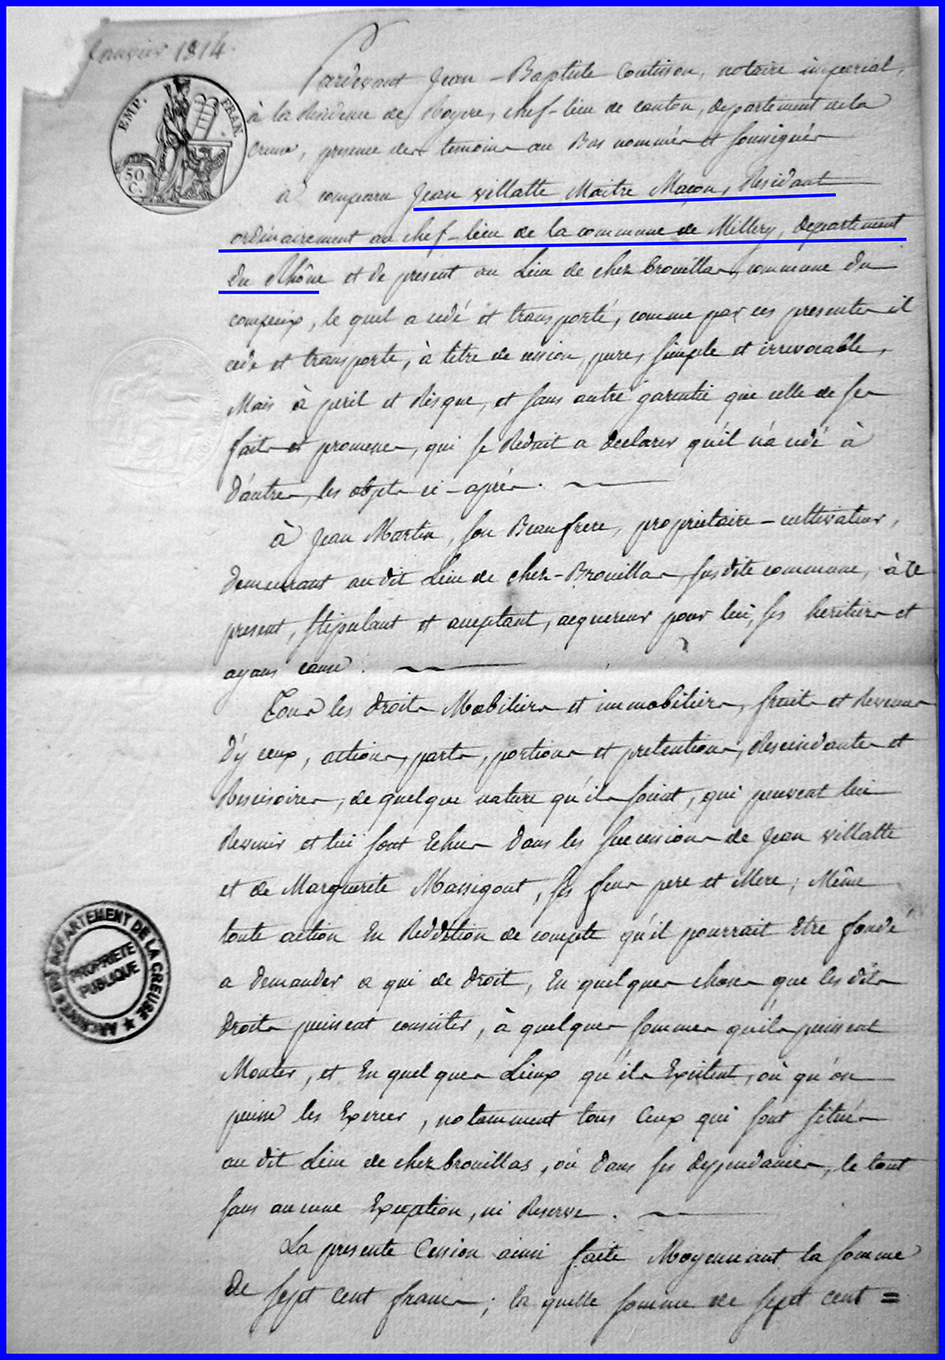 Janvier 1814.
Pardevant Jean-Baptiste Coutisson, notaire imperial,
à la Residence de Royere, chef-lieu de canton, departement de la
Creuse, presence des temoins au Bas nommés et soussignés
EMP. FRAN.
50 C.
à comparu Jean villatte Maitre Maçon, Residant
ordinairement au chef-lieu de la commune de Millery, departement
du Rhône et de present au Lieu de chez brouillas, commune du
compeix, le quel a cédé et transporté, comme par ces presentes il
cede et transporte, à titre de cession, pure, simple et irrevocable,
Mais à peril et Risque, et sans autre garentie que celle de ses
faits et promesses, qui se Reduit a declarer qu'il n'a cédé à
d'autres, les objets ci-après.
à Jean Martin, son Beaufrere, propriétaire-cultivateur,
demeurant au dit Lieu de chez-Brouillas, susdite commune, à ce
present, stipulant et aceptant, acquereur pour lui, ses heritiers et
ayans cause.
Tous les droits Mobiliers et immobiliers, fruits et Revenus
d'y ceux, actions, parts, portions et pretentions, Rescindantes et
Rescisoires, de quelque nature qu'ils soient, qui peuvent lui
Revenir et lui sont Echus dans les successions de Jean villatte
et de Marguerite Massigout, ses feus pere et Mere; Même
toute action En Reddition de compte qu'il pourrait Etre fondé
a demander a qui de droit, En quelques choses que les dits
droits puissent consister, à quelques sommes qu'ils puissent
Monter, et En quelques Lieux qu'ils Existent, où qu'on
puisse les Exercer, notamment tous Ceux qui sont situés
au dit Lieu de chez brouillas, où dans ses dependances, le tout
sans aucune Exception, ni Reserve.
ARCHIVES DU DEPARTEMENT DE LA CREUSE
PROPRIETE
PUBLIQUE
La presente Cession ainsi faite Moyennant la somme
de sept cent francs; la quelle somme de sept cent =